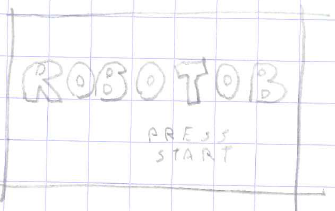 ROBOTOB
PRESS
START